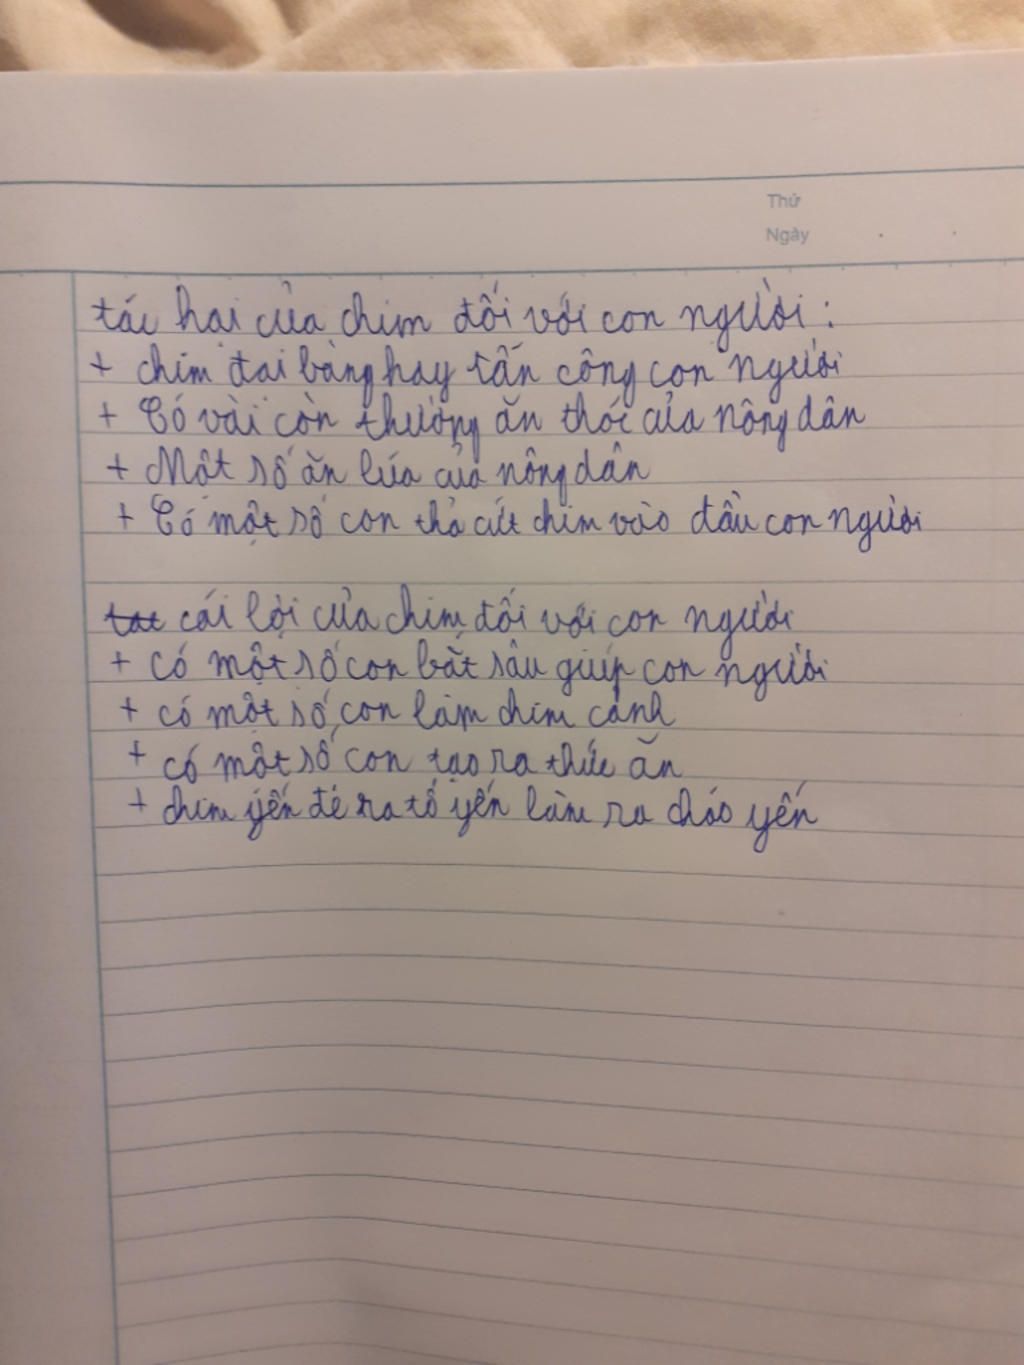 Thứ
Ngày
tác hại của chim đối với con người :
+ chim đại bàng hay tấn công con người
+ Có vài còn thường ăn thóc của nông dân
+ Một số ăn lúa của nông dân
+ Có một số con thả cứt chim vào đầu con người
cái lợi của chim đối với con người
+ có một số con bắt sâu giúp con người
+ có một số con làm chim cảnh
+ có một số con tạo ra thức ăn
+ chim yến đẻ ra tổ yến làm ra cháo yến